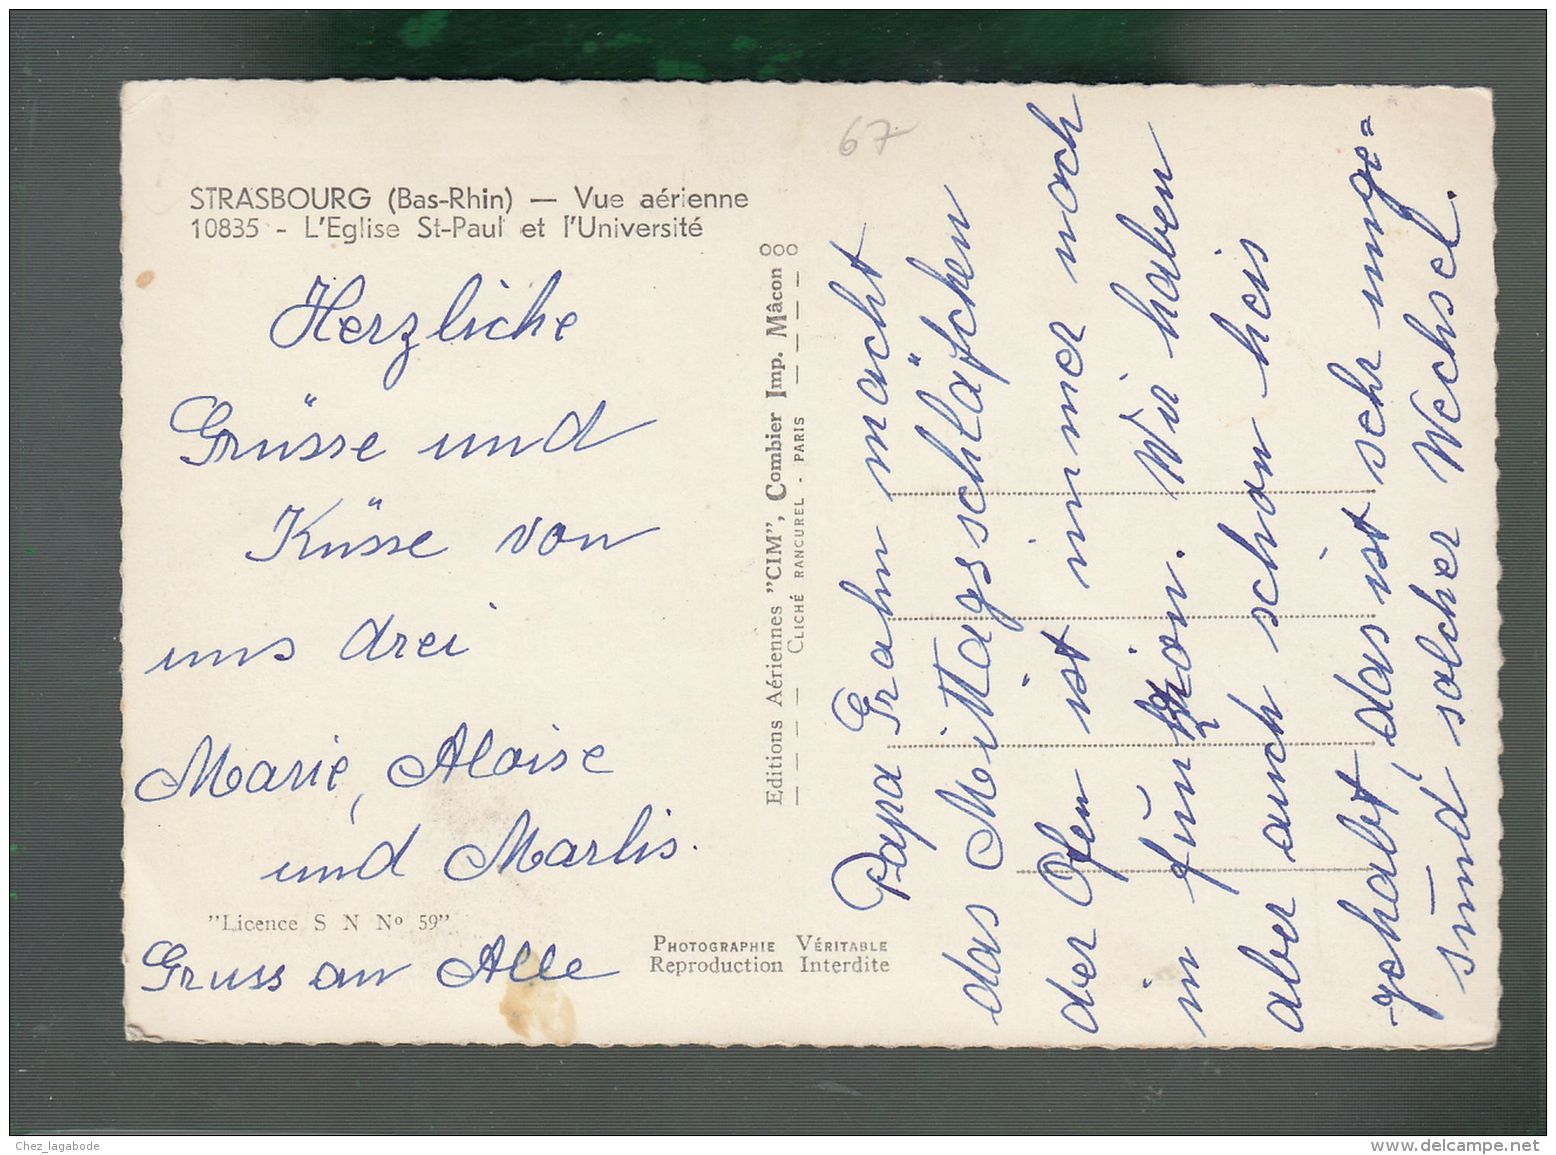 67
STRASBOURG (Bas-Rhin) — Vue aérienne
10835 - L'Eglise St-Paul et l'Université
Herzliche
Grüsse und
Küsse von
uns drei
Marie, Aloise
und Marlis.
"Licence S N Nº 59"
Gruss an Alle
Photographie Véritable
Reproduction Interdite
Editions Aériennes "CIM", Combier Imp. Mâcon
Cliché Rancurel - Paris
Papa Grahn macht
das Mittagsschläfchen
der Ofen ist immer noch
in funkzion. Wir haben
aber auch schon heis
gehabt, das ist sehr unge=
sund solcher Wechsel.
Chez_lagabode
www.delcampe.net